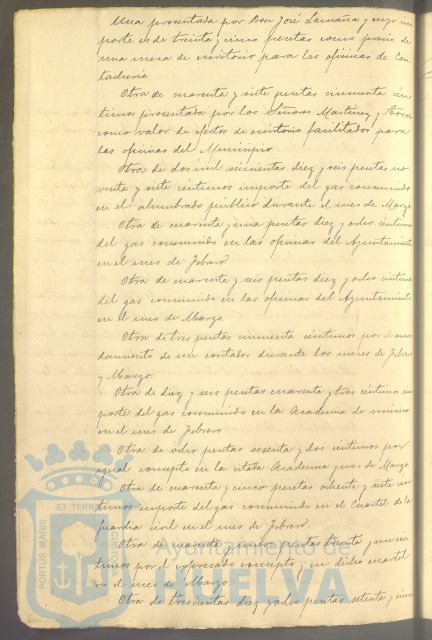 Una presentada por Don José Lamaña y cuyo im
porte es de treinta y cinco pesetas como precio de
una mesa de escritorio para las oficinas de Con
taduría
Otra de cuarenta y siete pesetas cincuenta cén
timos presentada por los Señores Martinez y
como valor de efectos de escritorio facilitados para
las oficinas del Municipio.
Otra de dos mil seiscientas diez y seis pesetas no
venta y siete céntimos importe del gas consumido
en el alumbrado público durante el mes de Marzo
Otra de cuarenta y una pesetas diez y ocho céntimos
del gas consumido en las oficinas del Ayuntamiento
en el mes de Febrero.
Otra de cuarenta y seis pesetas diez y ocho céntimos
del gas consumido en las oficinas del Ayuntamiento
en el mes de Marzo.
Otra de tres pesetas cincuenta céntimos por el arren
damiento de un contador durante los meses de Febrero
y Marzo.
Otra de diez y seis pesetas cuarenta y tres céntimos im
porte del gas consumido en la Academia de música
en el mes de Febrero
Otra de ocho pesetas sesenta y dos céntimos por
igual concepto en la citada Academia y mes de Marzo.
Otra de cuarenta y cinco pesetas ochenta y siete cén
timos importe del gas consumido en el Cuartel de la
guardia civil en el mes de Febrero.
Otra de cuarenta y cinco pesetas treinta y un cén
timos por el expresado concepto y en dicho cuartel
en el mes de Marzo.
Otra de trescientas diez y ocho pesetas setenta y cinco
PORTUS MARIS ET TERRAE CUSTODIA
Ayuntamiento de
HUELVA